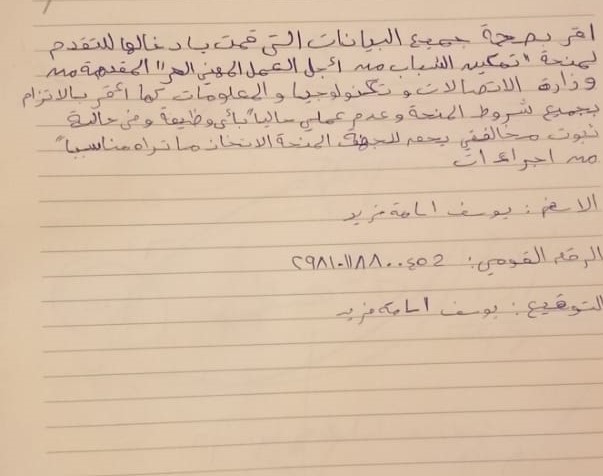 اقر بصحة جميع البيانات التى قمت بادخالها للتقدم
لمنحة "تمكين الشباب من أجل العمل المهنى الحر" المقدمة من
وزارة الاتصالات وتكنولوجيا والمعلومات كما أقر بالالتزام
بجميع شروط المنحة وعدم عملى حاليا" بأى وظيفة وفى حالة
ثبوت مخالفتي يحق للجهة المنحة الاتخاذ ما تراه مناسبا"
من اجراءات
الاسم : يوسف اسامة فريد
الرقم القومي :
التوقيع : يوسف اسامة فريد